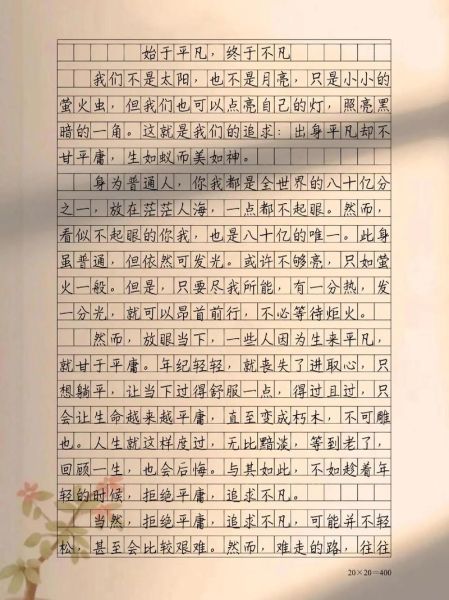 始于平凡，终于不凡
我们不是太阳，也不是月亮，只是小小的
萤火虫，但我们也可以点亮自己的灯，照亮黑
暗的一角。这就是我们的追求：出身平凡却不
甘平庸，生如蚁而美如神。
身为普通人，你我都是全世界的八十亿分
之一，放在茫茫人海，一点都不起眼。然而，
看似不起眼的你我，也是八十亿的唯一。此身
虽普通，但依然可发光。或许不够亮，只如萤
火一般。但是，只要尽我所能，有一分热，发
一分光，就可以昂首前行，不必等待炬火。
然而，放眼当下，一些人因为生来平凡，
就甘于平庸。年纪轻轻，就丧失了进取心，只
想躺平，让当下过得舒服一点，得过且过，只
会让生命越来越平庸，直至变成朽木，不可雕
也。人生就这样度过，无比黯淡，等到老了，
回顾一生，也会后悔。与其如此，不如趁着年
轻的时候，拒绝平庸，追求不凡。
当然，拒绝平庸，追求不凡，可能并不轻
松，甚至会比较艰难。然而，难走的路，往往
20×20=400